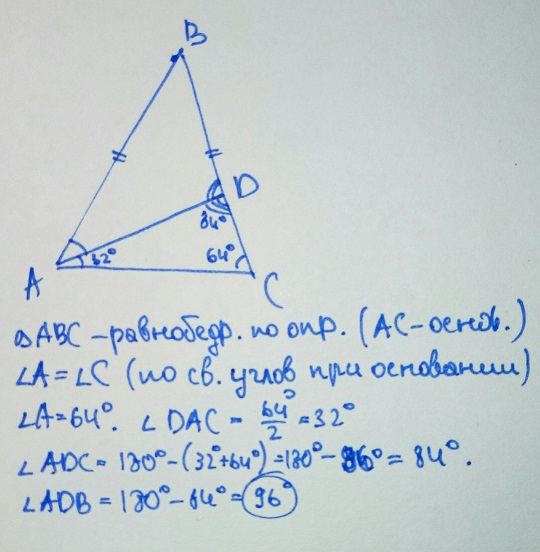 B
D
84°
32°
64°
A
C
△ABC – равнобедр. по опр. (AC – основ.)
∠A = ∠C (по св. углов при основании)
∠A = 64°. ∠DAC = 64°/2 = 32°
∠ADC = 180° – (32° + 64°) = 180° – 96° = 84°.
∠ADB = 180° – 84° = 96°